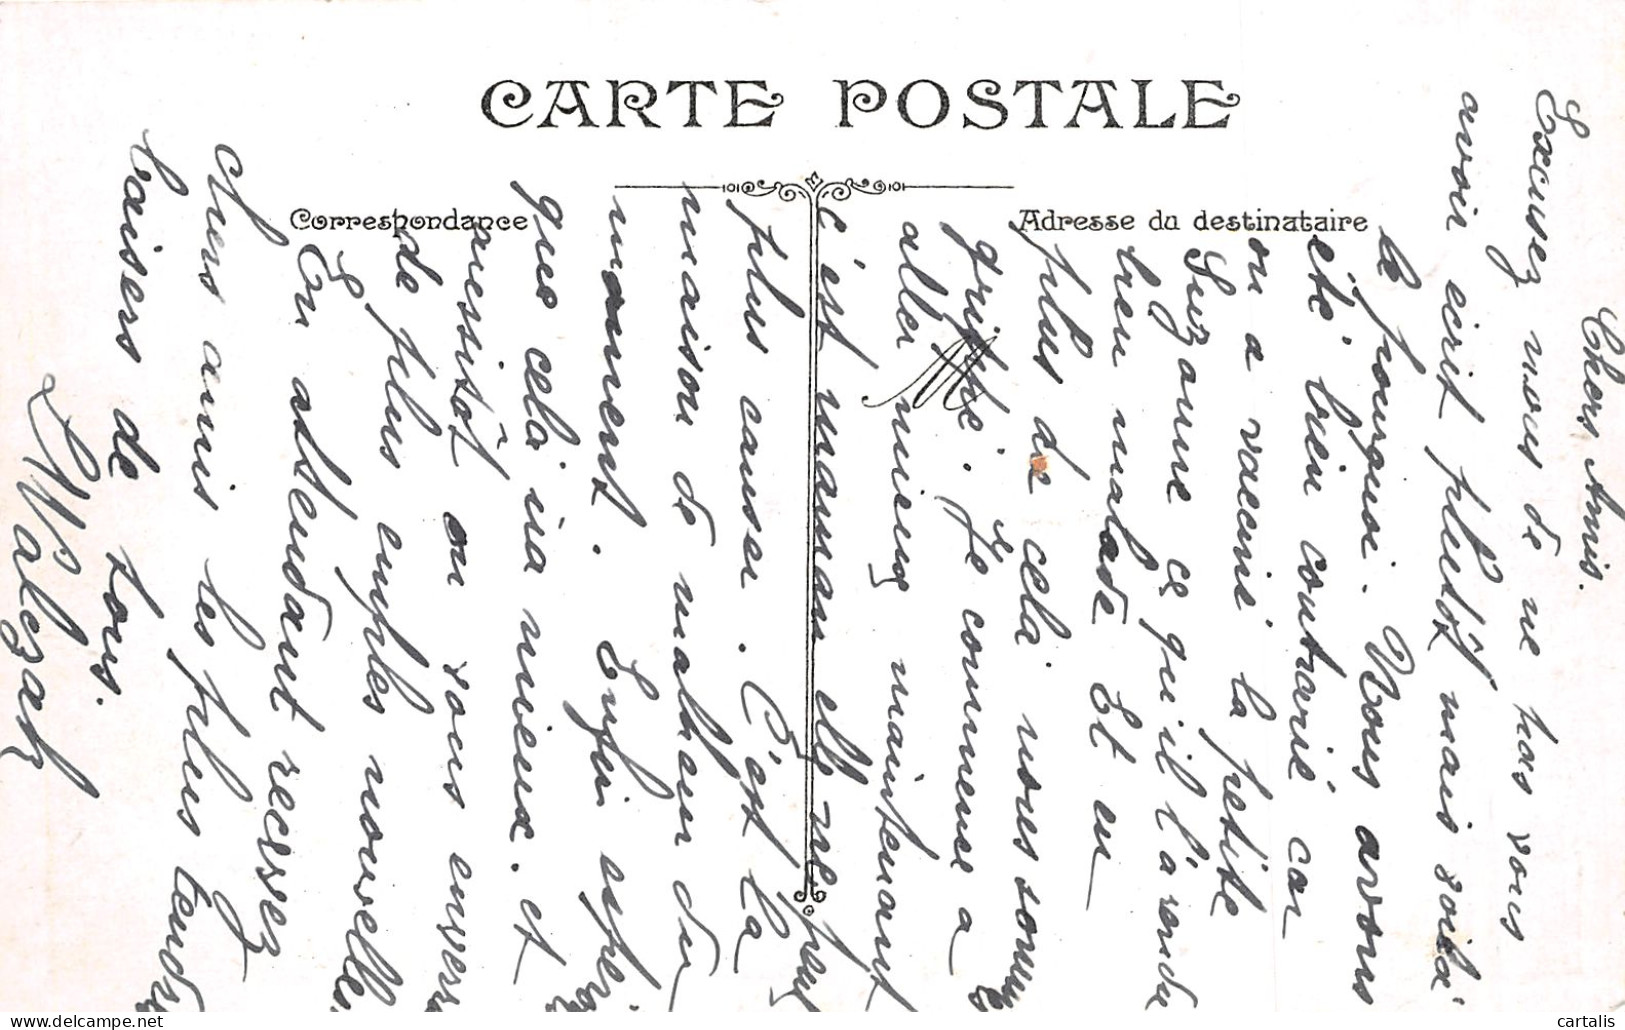 CARTE POSTALE
Correspondance
Adresse du destinataire
Chers Amis.
Excusez nous de ne pas vous
avoir écrit plutôt mais voilà
le pourquoi. Nous avons
été bien contrarié car
on a vacciné la petite
Suzanne ce qu'il l'a rendu
bien malade Et en
plus de cela nous sommes
grippé. Je commence a
aller mieux maintenant
c'est maman elle ne peut
plus causer. C'est la
maison de malheur du
moment. Enfin
que cela ira mieux. et
aussitôt on vous enverra
de plus amples nouvelles
En attendant recevez
chers amis les plus tendres
baisers de tous.
Walezak
cartalis